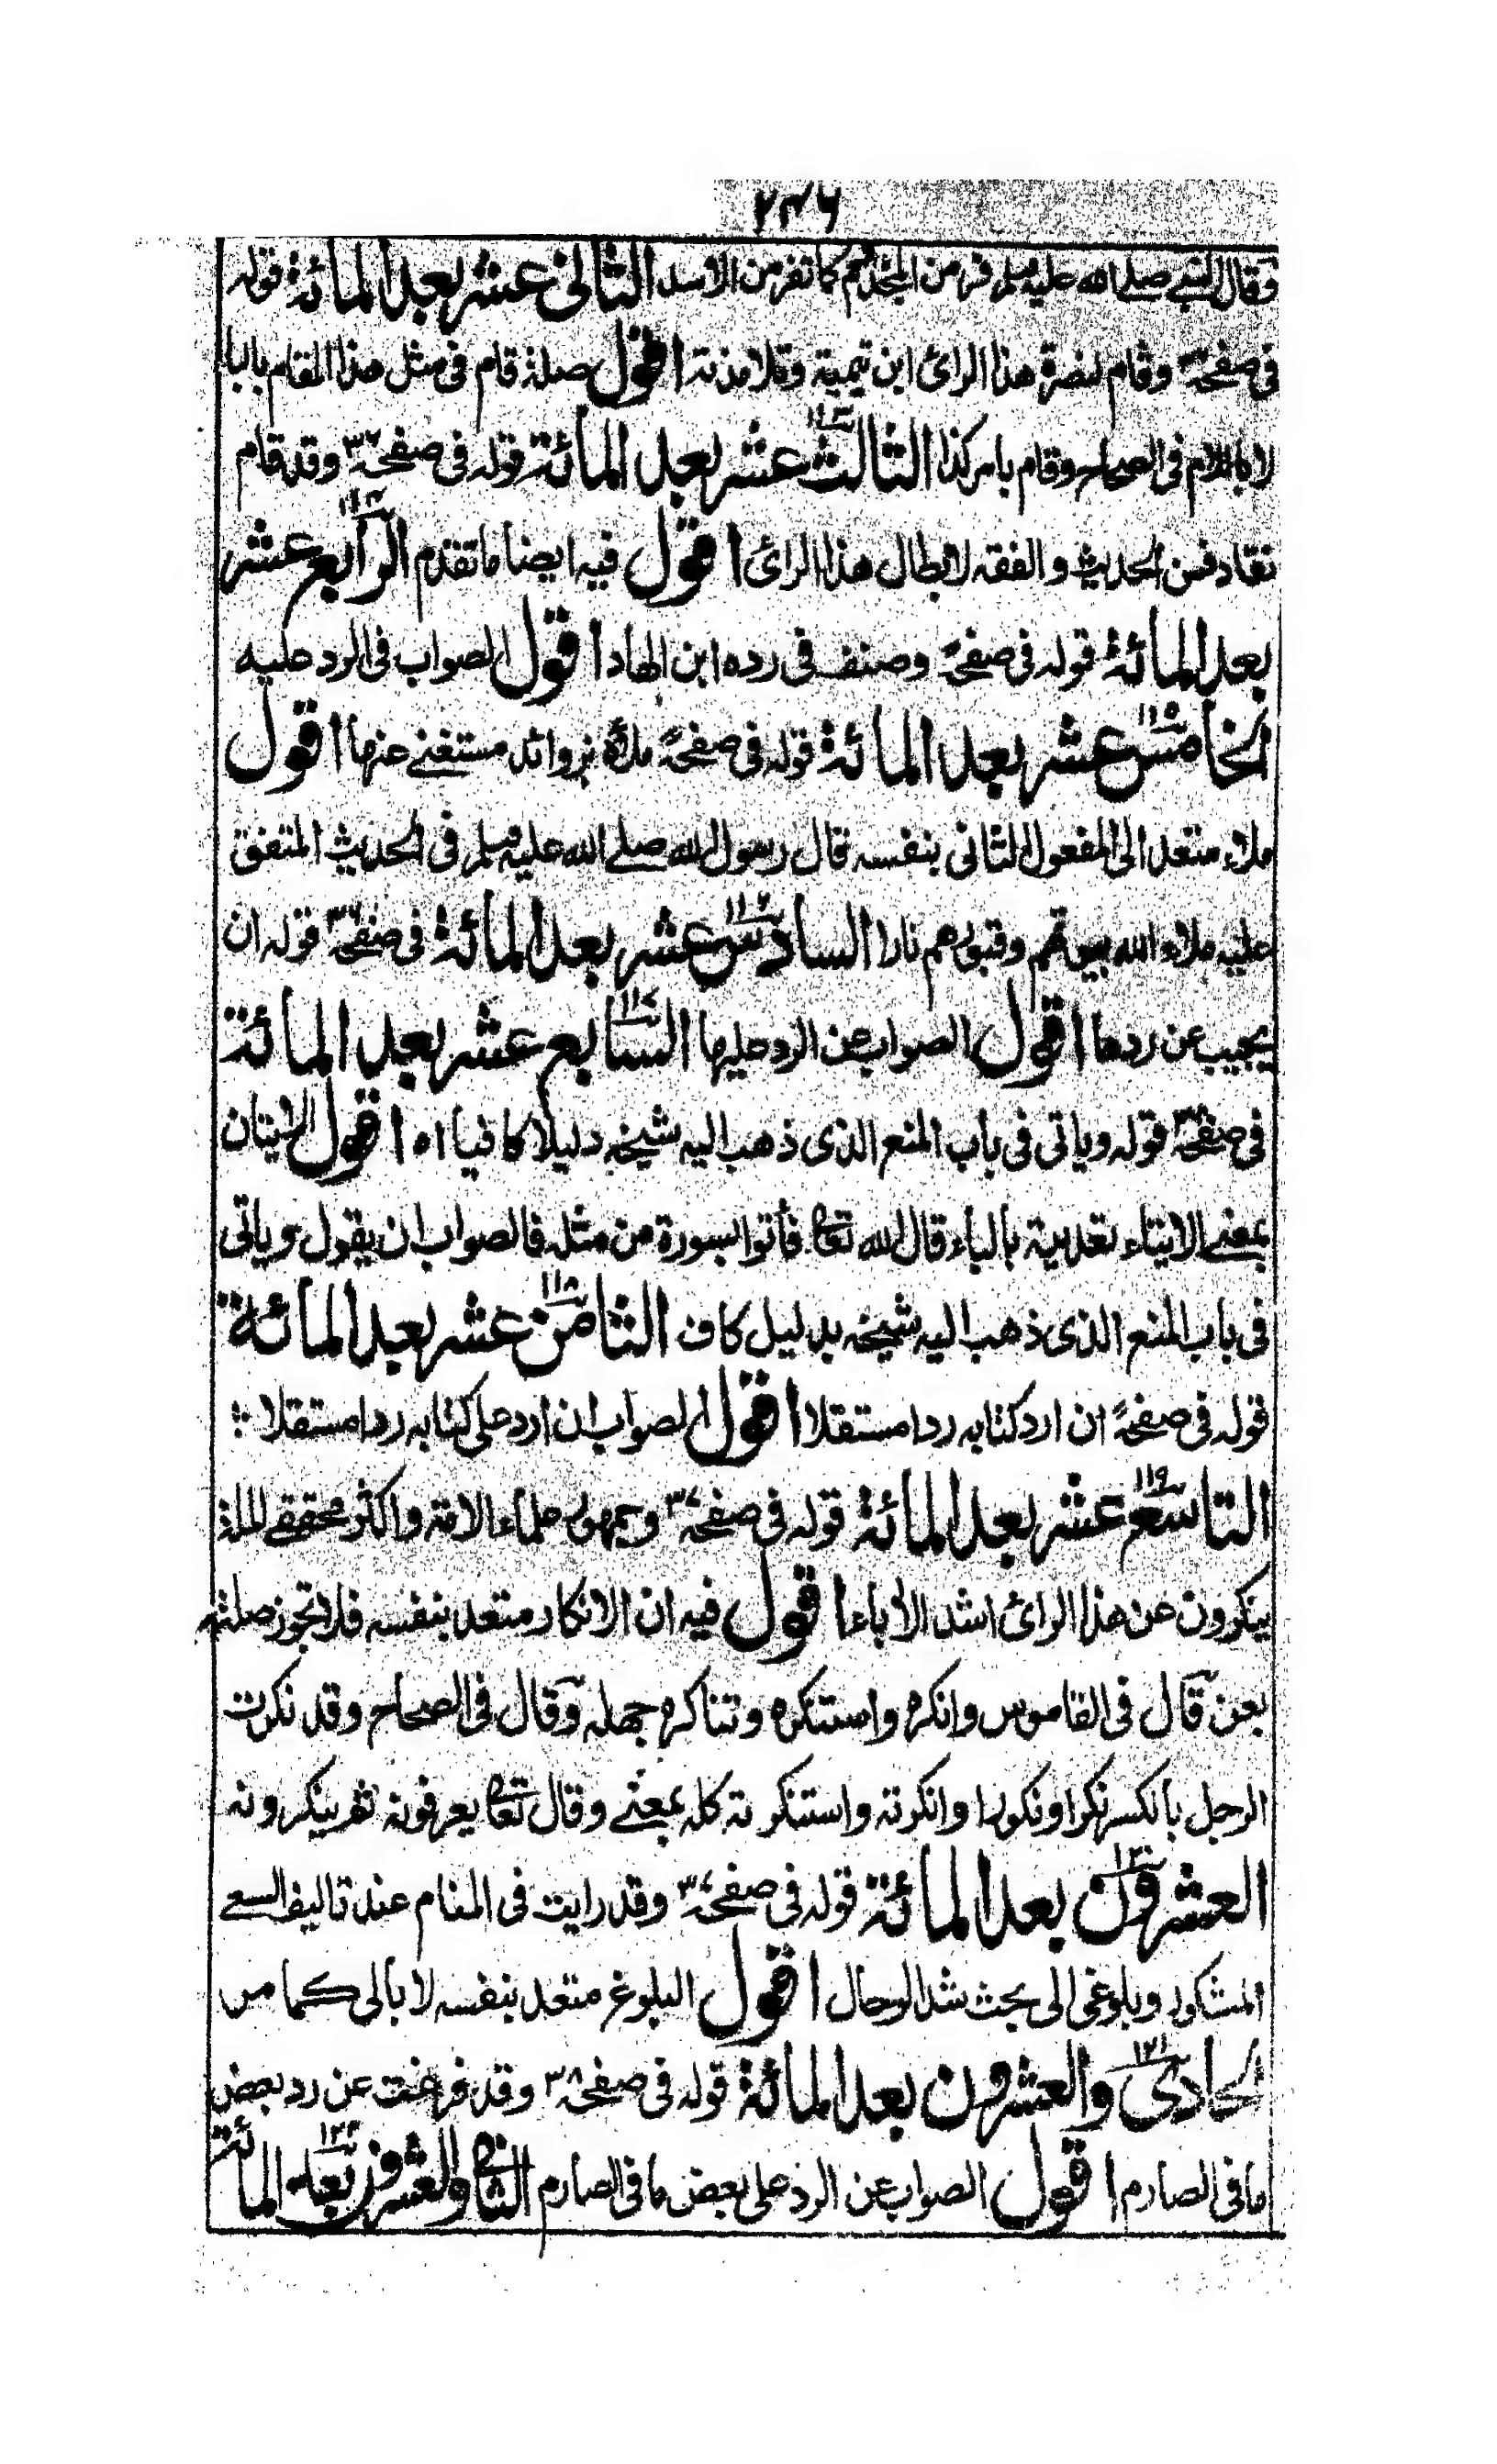 ٢٣٦
وقال النبي صلے الله عليه وسلم فر من المجذوم كما تفر من الاسد الثاني عشر بعد المائة قوله
فى صفحة وقام لنصرة هذا الرائ ابن تيمية وتلامذته اقول صلة قام فى مثل هذا المقام بالبا
لا باللام فى الصحاح وقام بامر كذا الثالث عشر بعد المائة ١١٣ قوله فى صفحة ٣٧ وقد قام
نقاد فن الحديث والفقه لابطال هذا الرائ اقول فيه ايضا ما تقدم الرابع عشر ١١٤
بعد المائة قوله فى صفحة وصنف فى رده ابن الهاد اقول الصواب فى الرد عليه
الخامس عشر بعد المائة ١١٥ قوله فى صفحة ملأه بزوائد مستغنے عنها اقول
ملاء متعد الى المفعول الثانى بنفسه قال رسول الله صلے الله عليه وسلم فى الحديث المتفق
عليه ملاء الله بيوتهم وقبورهم نارا السادس عشر بعد المائة ١١٦ فى صفحة ٣٧ قوله ان
يجيب عن ردها اقول الصواب عن الرد عليها السابع عشر بعد المائة ١١٧
فى صفحة ٣٧ قوله وياتى فى باب المنع الذى ذهب اليه شيخه دليلا كافيا اه اقول الاتيان
بمعنے الايتاء تعديته بالباء قال الله تعالى فأتوا بسورة من مثله فالصواب ان يقول وياتى
فى باب المنع الذى ذهب اليه شيخه بدليل كاف الثامن عشر بعد المائة ١١٨
قوله فى صفحة ان ارد كتابه ردا مستقلا اقول الصواب ان ارد على كتابه ردا مستقلا
التاسع عشر بعد المائة ١١٩ قوله فى صفحة ٣٧ وجمهور علماء الامة واكثر محققے الملة
ينكرون عن هذا الرائ اشد الاباء اقول فيه ان الانكار متعد بنفسه فلا تجوز صلته
بعن قال فى القاموس وانكره واستنكره وتناكره جهله وقال فى الصحاح وقد نكرت
الرجل بالكسر نكرا ونكورا وانكرته واستنكرته كله بمعنے وقال تعالى يعرفونه ثم ينكرونه
العشرون بعد المائة ١٢٠ قوله فى صفحة ٣٧ وقد رايت فى المنام عند تاليف السعے
المشكور وبلوغى الى بحث شد الرحال اقول البلوغ متعد بنفسه لا بالى كما مر
الحادى والعشرون بعد المائة ١٢١ قوله فى صفحة ٣٨ وقد فرغت عن رد بعض
ما فى الصارم اقول الصواب عن الرد على بعض ما فى الصارم الثانى والعشرون بعد المائة ١٢٢